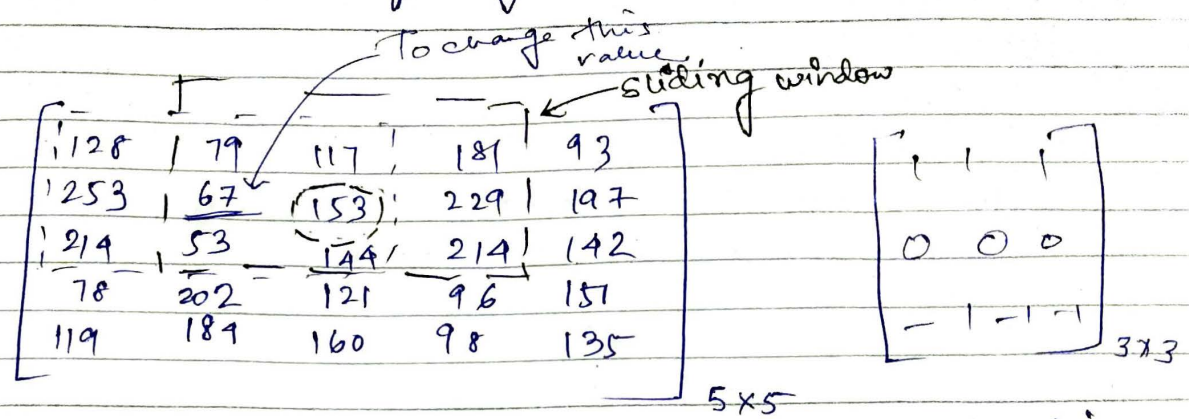 To change this
value
sliding window
128 79 117 181 93
253 67 153 229 197
214 53 144 214 142
78 202 121 96 151
119 184 160 98 135
5×5
1 1 1
0 0 0
-1 -1 -1
3×3